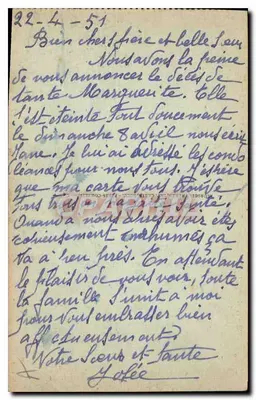 22-4-51
Bien chers frère et belle Sœur
Nous avons la peine
de vous annoncer le décès de
tante Marguerite. Elle
s'est éteinte tout doucement
le dimanche 8 avril nous écrit
Jane. Je lui ai adressé les condo
léances pour nous tous. J'espère
que ma carte vous trouve
tous très
Quand à nous après avoir été
copieusement enrhumés ça
va à peu près. En attendant
le plaisir de vous voir, toute
la famille s'unit à moi
pour vous embrasser bien
affectueusement
Votre Sœur et tante
Josée